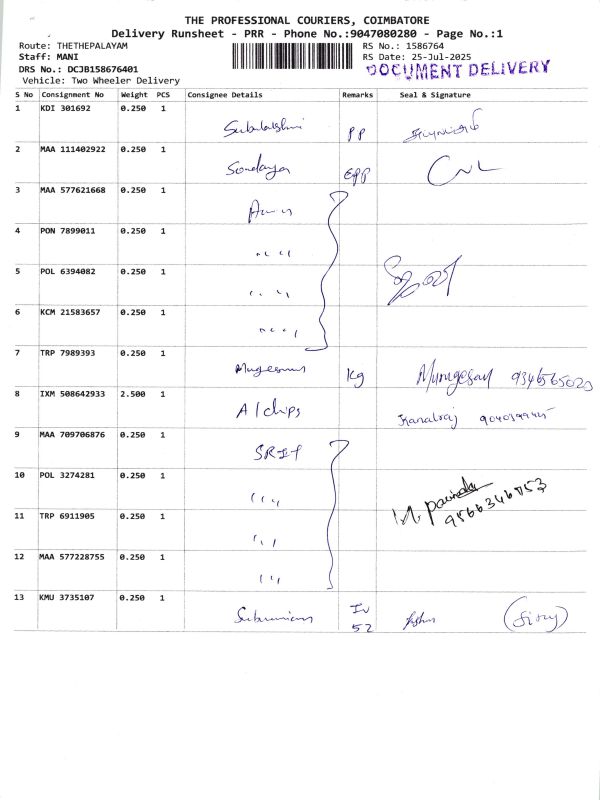 THE PROFESSIONAL COURIERS, COIMBATORE
Delivery Runsheet - PRR - Phone No.:9047080280 - Page No.:1
Route: THETHEPALAYAM
RS No.: 1586764
Staff: MANI
RS Date: 25-Jul-2025
DRS No.: DCJB158676401
DOCUMENT DELIVERY
Vehicle: Two Wheeler Delivery
S No Consignment No Weight PCS Consignee Details Remarks Seal & Signature
1 KDI 301692 0.250 1
PP
2 MAA 111402922 0.250 1
3 MAA 577621668 0.250 1
4 PON 7899011 0.250 1
5 POL 6394082 0.250 1
6 KCM 21583657 0.250 1
7 TRP 7989393 0.250 1
Kg Murugesan
8 IXM 508642933 2.500 1
A1 chips
9 MAA 709706876 0.250 1
10 POL 3274281 0.250 1
11 TRP 6911905 0.250 1
12 MAA 577228755 0.250 1
13 KMU 3735107 0.250 1
52